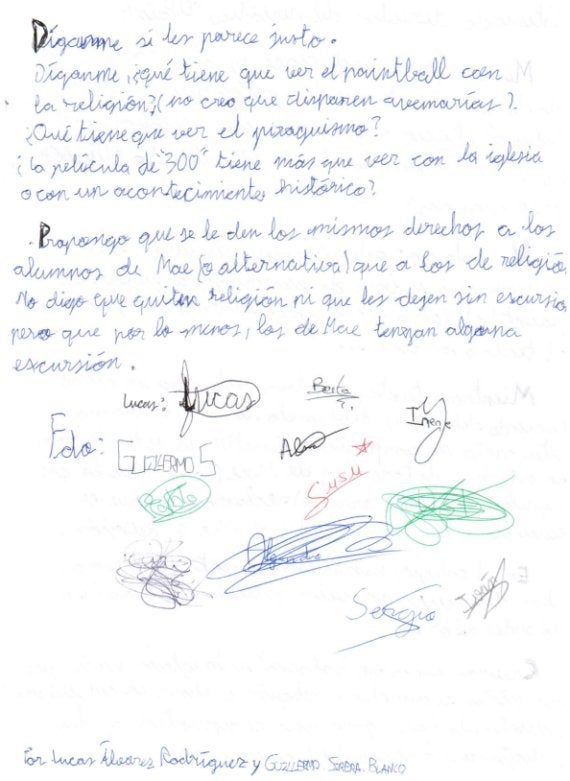 Díganme si les parece justo.
Díganme, ¿qué tiene que ver el paintball con
la religión? (no creo que disparen avemarías).
¿Qué tiene que ver el piraguismo?
¿La película de "300" tiene más que ver con la iglesia
o con un acontecimiento histórico?
. Propongo que se le den los mismos derechos a los
alumnos de Mae (o alternativa) que a los de religión.
No digo que quiten religión ni que les dejen sin excursio
pero que por lo menos, los de Mae tengan alguna
excursión.
Lucas: Lucas Berta
Irene
Fdo: GUILLERMO S
Susu
Alejandro
Sergio
Por Lucas Álvarez Rodríguez y GUILLERMO BLANCO